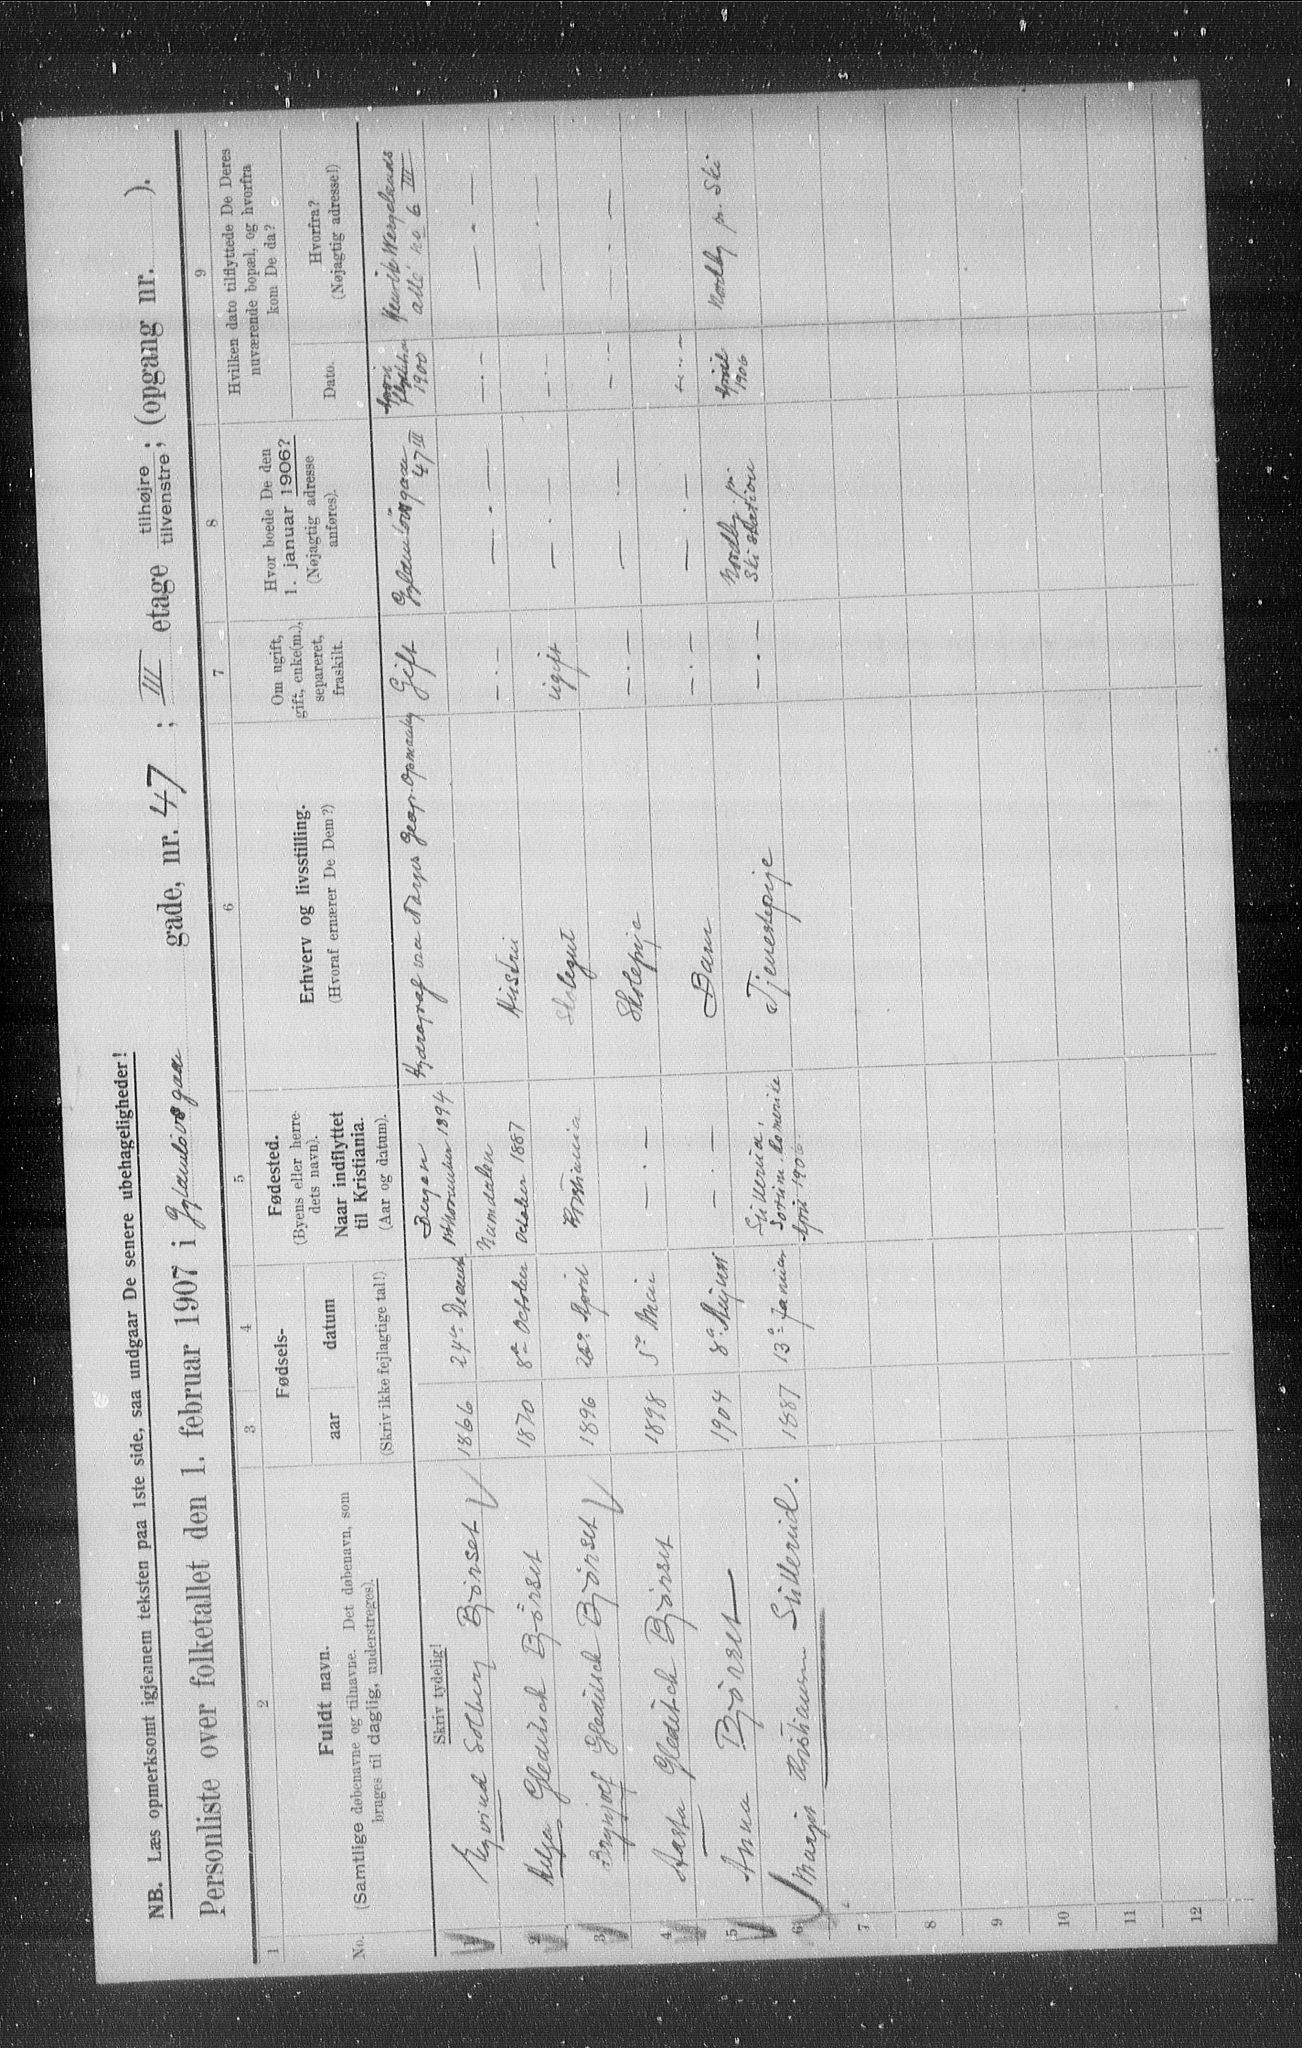 NB. Læs opmerksomt igjennem teksten paa 1ste side, saa undgaar De senere ubehageligheder!
Personliste over folketallet den 1. februar 1907 i Gyldenløvsgade gade, nr. 47 ; III etage tilhøjre ; tilvenstre ; (opgang nr. ).
1 2 3 4 5 6 7 8 9
No.
Fuldt navn.
(Samtlige døbenavne og tilnavne. Det døbenavn, som
bruges til daglig, understreges).
Fødsels-
aar
datum
(Skriv ikke fejlagtige tal!)
Fødested.
(Byens eller herre
dets navn).
Naar indflyttet
til Kristiania.
(Aar og datum).
Erhverv og livsstilling.
(Hvoraf ernærer De Dem?)
Om ugift,
gift, enke(m.),
separeret,
fraskilt.
Hvor boede De den
1. januar 1906?
(Nøjagtig adresse
anføres).
Hvilken dato tilflyttede De Deres
nuværende bopæl, og hvorfra
kom De da?
Dato.
Hvorfra?
(Nøjagtig adresse!)
Skriv tydelig!
1 Eyvind Solberg Bjørset 1866 24de Bergen 1894 Hydrograf ved Norges Geogr. Opmaaling Gift Gyldenløvsgade 47 III 1900 Henrik Wergelands allé no 6 III
2 Helga Gleditsch Bjørset 1870 8de October Namdalen October 1887 Hustru — . — — . — — . — — . —
3 Brynjolf Gleditsch Bjørset 1896 April Kristiania Skolegut ugift — . — — . — — . —
4 Aasta Gleditsch Bjørset 1898 5te Mai — . — Skolepige — . — — . — — . — — . —
5 Anna Bjørset 1904 8de — . — Barn — . — — . — — . —
6 Margit Kristiansen Sillerud. 1887 13de Januar Sillerud, Sørum Romerike April 1906 Tjenestepige — . — Nordby pr. Ski station April 1906 Nordby pr. Ski
7
8
9
10
11
12